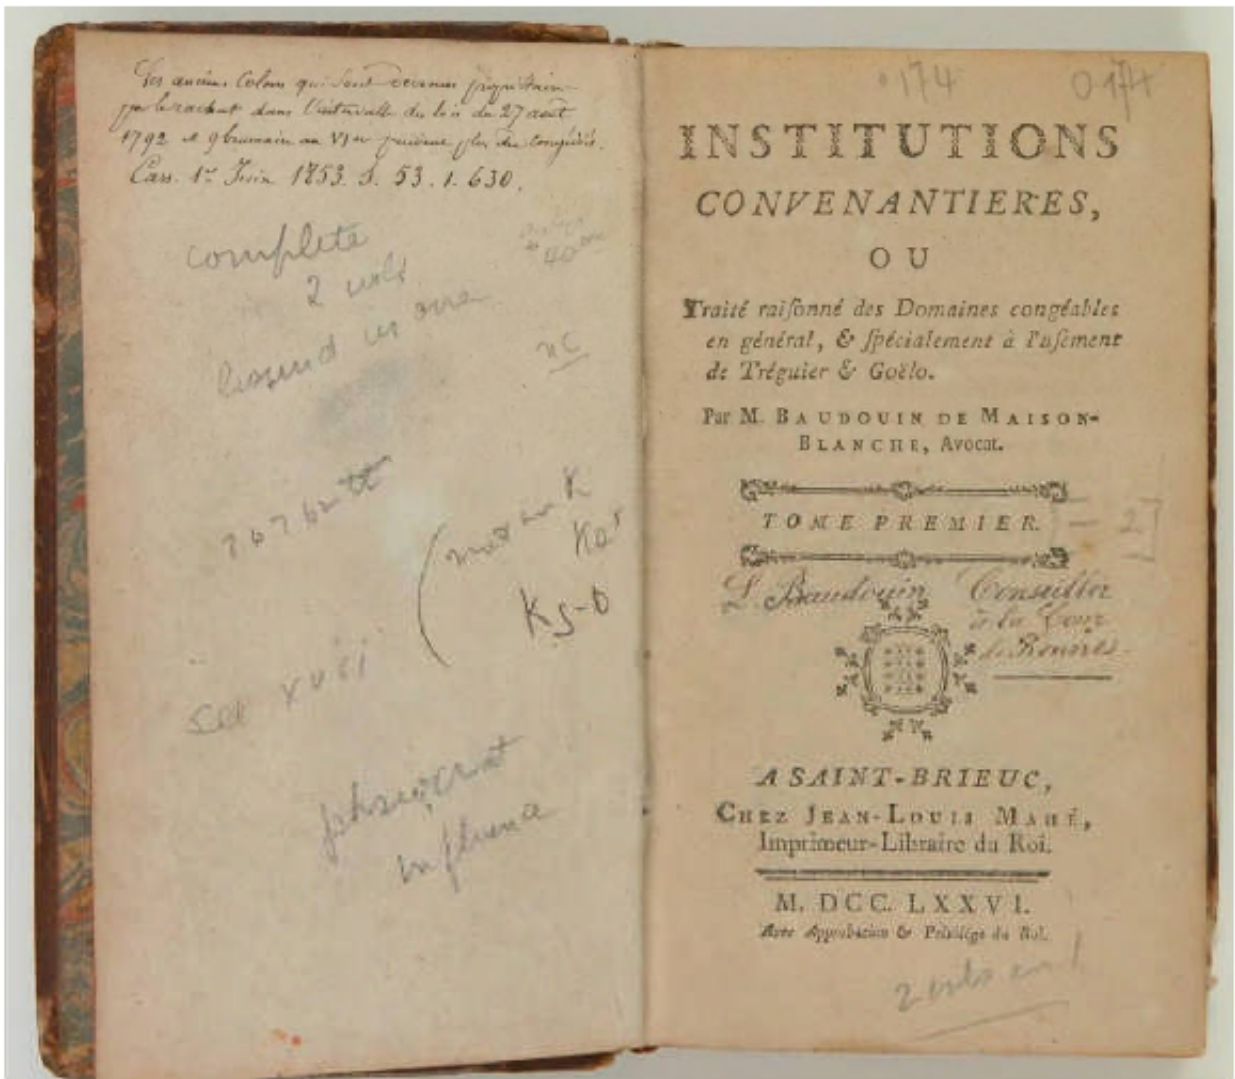 Les anciens Colons qui sont devenus propriétaires
par le rachat dans l'intervalle des lois du 27 aout
1792 et 9 brumaire an VI ne peuvent plus être congédiés.
Cass. 1er Juin 1853. S. 53. 1. 630.
complete
2 vols
bound in one
40
nc
Ks-0
physiocrat
influence
174
0174
INSTITUTIONS
CONVENANTIERES,
OU
Traité raisonné des Domaines congéables
en général, & spécialement à l'usement
de Tréguier & Goëlo.
Par M. BAUDOUIN DE MAISON-
BLANCHE, Avocat.
TOME PREMIER.
- 2]
L. Baudouin Conseiller
à la Cour
de Rennes
A SAINT-BRIEUC,
CHEZ JEAN-LOUIS MAHÉ,
Imprimeur-Libraire du Roi.
M. DCC. LXXVI.
Avec Approbation & Privilége du Roi.
2 vols in 1